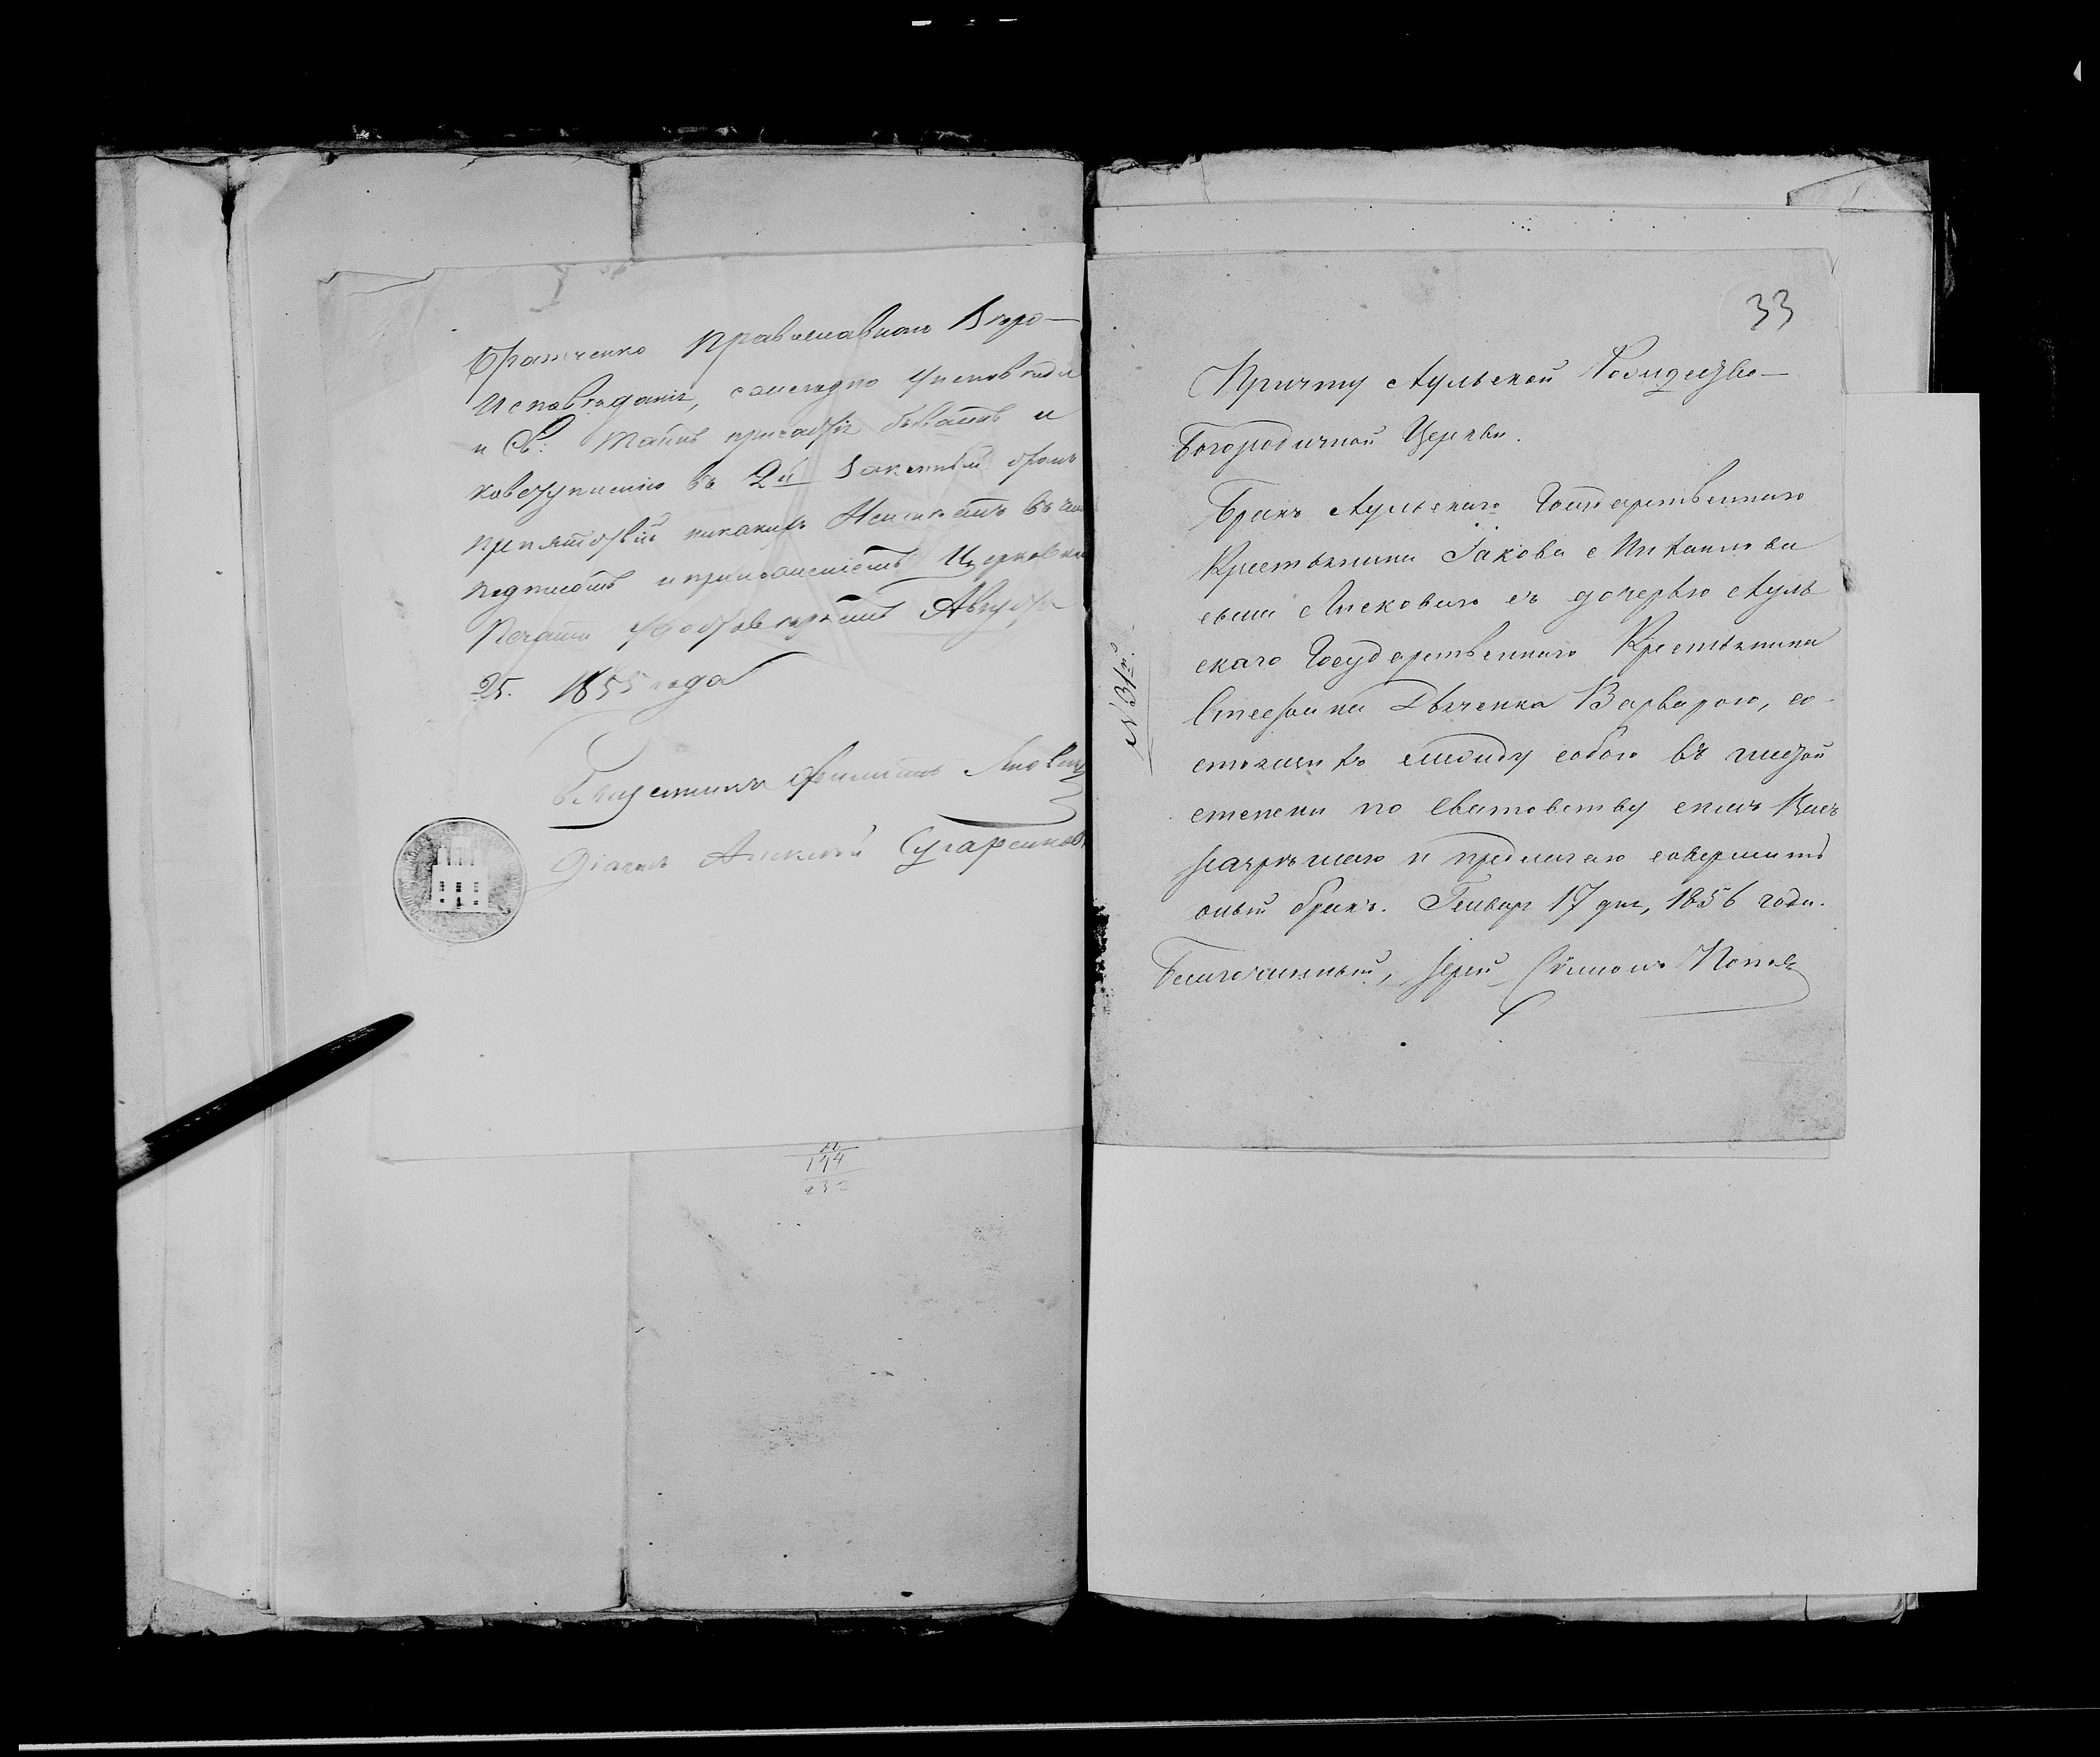 Православнаго Веро-
Исповѣданія, ежегодно у исповѣди
и Св: Таинъ причастія бываетъ и
ковступленію въ 2й законный бракъ
препятствій никакихъ Неимѣетъ въ чемъ
подписомъ и приложеніемъ Церковной
Печати удостовѣряемъ Августа
25. 1855 года
Священникъ
Діаконъ Алексѣй
144
232
33
Причту Аульской Рождество-
Богородичной Церкви.
Бракъ Аульскаго Государственнаго
Крестьянина Іакова Михаилова
сына Лисковаго съ дочерью Ауль
скаго Государственнаго Крестьянина
Стефана Дяченка Варварою, со-
стоящихъ между собою въ шестой
степени по Сватовству симъ Вамъ
разрѣшаю и предлагаю совершить
оный бракъ. Генваря 17 дня, 1856 года.
Благочинный, Іерей Симеонъ Поповъ